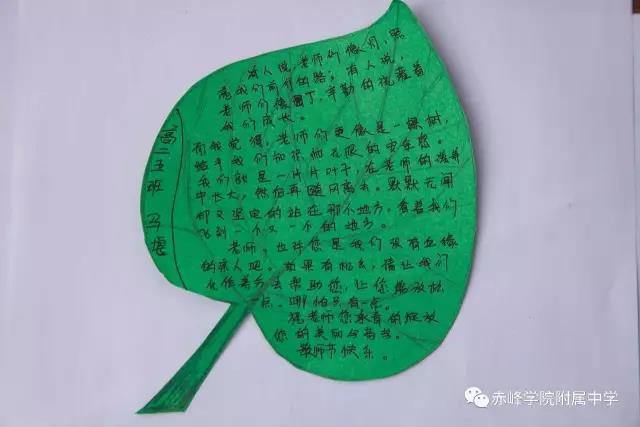 有人说老师们像灯，照
亮我们前行的路；有人说，
老师们像园丁，辛勤的浇灌着
我们成长。
而我觉得，老师们更像是一棵树
给予我们知识和无限的安全感。
我们就是一片片叶子，在老师的滋养
中长大，然后再随风离去。默默无闻
却又坚定的站在那个地方，看着我们
飞到一个又一个的地方。
老师。也许您是我们没有血缘
的亲人吧。如果有机会，请让我们
点。哪怕只有一点。
祝老师您
您的美丽
教师节快乐。
高二五班 马
赤峰学院附属中学